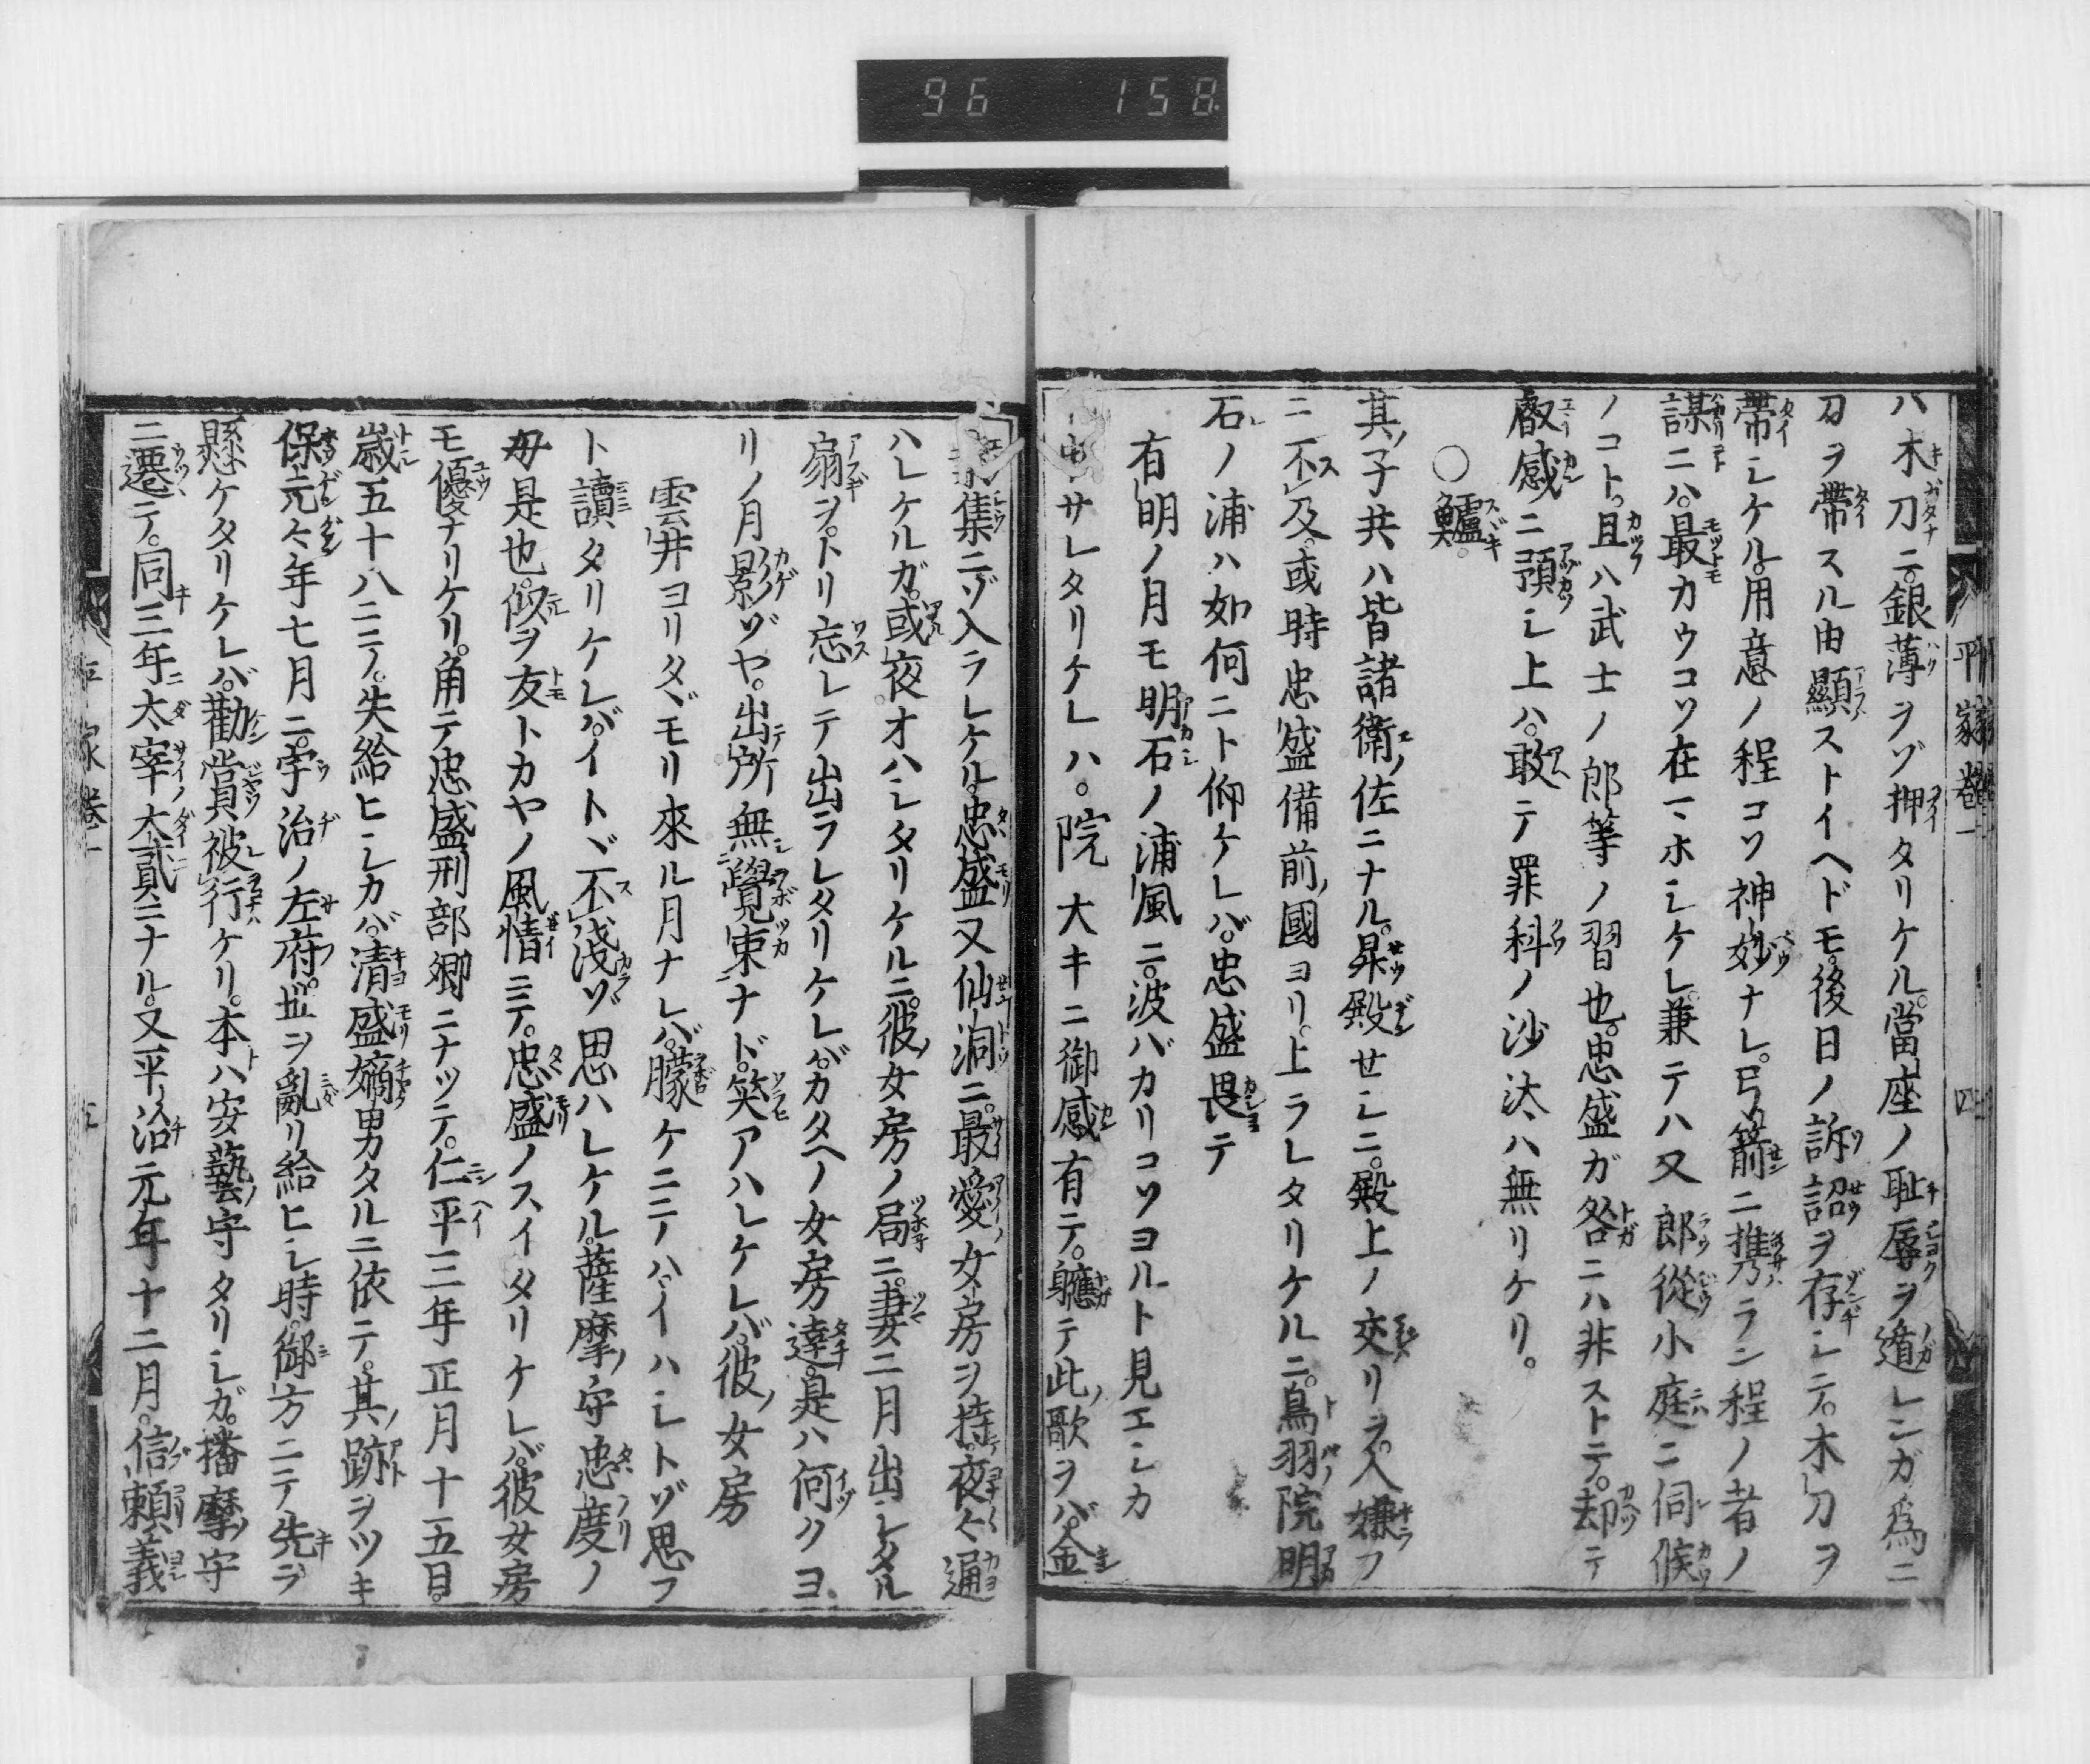 96 158
ハ木刀ニ。銀薄ヲゾ押タリケル。當座ノ耻辱ヲ遁レンガ爲ニ
刀ヲ帶スル由顯ストイヘドモ。後日ノ訴詔ヲ存シテ。木刀ヲ
帶シケル。用意ノ程コソ神妙ナレ。弓箭ニ携ラン程ノ者ノ
謀ニハ。最カウコソ在マホシケレ。兼テハ又郎從小庭ニ伺候
ノコト。且ハ武士ノ郎等ノ習也。忠盛ガ咎ニハ非ストテ。却テ
叡感ニ預シ上ハ。敢テ罪科ノ沙汰ハ無リケリ。
○鱸。
其ノ子共ハ皆諸衛ノ佐ニナル。昇殿せシニ。殿上ノ交リヲ。人嫌フ
ニ不及。或時忠盛備前ノ國ヨリ。上ラレタリケルニ。鳥羽院明
石ノ浦ハ如何ニト仰ケレバ。忠盛畏テ
有明ノ月モ明石ノ浦風ニ。波バカリコソヨルト見エシカ
ト申サレタリケレハ。院大キニ御感有テ。軈テ此ノ歌ヲバ。金
葉集ニゾ入ラレケル。忠盛又仙洞ニ。最愛ノ女房ヲ持テ。夜々通
ハレケルガ。或夜オハシタリケルニ。彼ノ女房ノ局ニ。妻ニ月出シタル
扇ヲ。トリ忘レテ出ラレタリケレバ。カタヘノ女房達。是ハ何クヨ
リノ月影ゾヤ。出所無覺束ナド。笑アハレケレバ。彼ノ女房
雲井ヨリタヾモリ來ル月ナレバ。朧ケニテハイハシトゾ思フ
ト讀タリケレバ。イトヾ不淺ゾ思ハレケル。薩摩ノ守忠度ノ
毋是也。似ヲ友トカヤノ風情ニテ。忠盛ノスイタリケレバ。彼女房
モ優ナリケリ。角テ忠盛刑部卿ニナッテ。仁平三年正月十五日。
歳五十八ニテ。失給ヒシカバ。清盛嫡男タルニ依テ。其ノ跡ヲツキ
保元々年七月ニ。宇治ノ左府。世ヲ亂リ給ヒシ時。御方ニテ先ヲ
懸ケタリケレバ。勸賞被行ケリ。本ハ安藝ノ守タリシガ。播摩ノ守
ニ遷テ。同三年ニ太宰大貳ニナル。又平治元年十二月。信頼義
平家巻一
四